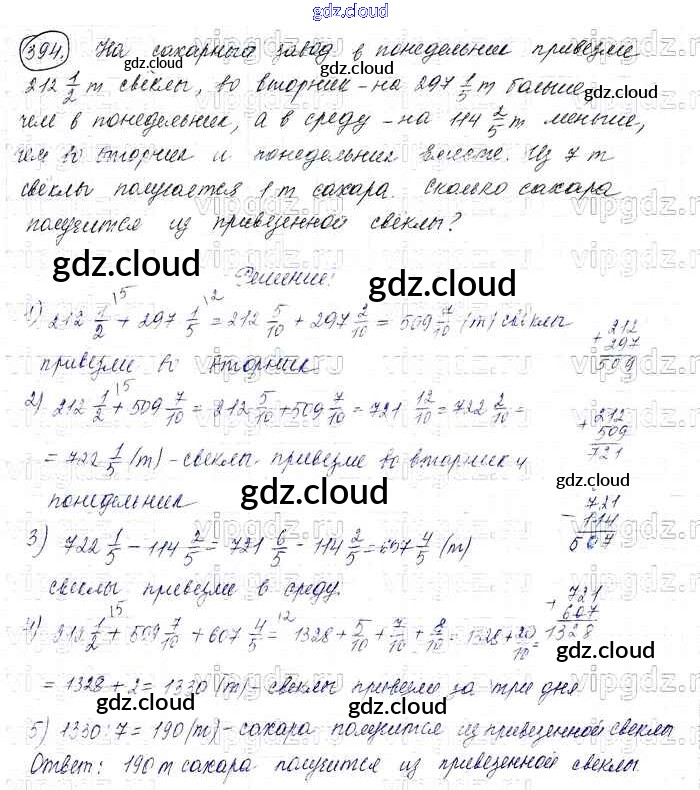 gdz.cloud
394. На сахарный завод в понедельник привезли
212 1/2 т свёклы, во вторник - на 297 1/5 т больше,
чем в понедельник, а в среду - на 114 2/5 т меньше,
чем во вторник и понедельник вместе. Из 7 т
свёклы получается 1 т сахара. Сколько сахара
получится из привезенной свеклы?
Решение:
1) 212 1/2 + 297 1/5 = 212 5/10 + 297 2/10 = 509 7/10 (т) свёклы
привезли во вторник.
2) 212 1/2 + 509 7/10 = 212 5/10 + 509 7/10 = 721 12/10 = 722 2/10 =
= 722 1/5 (т) - свеклы привезли во вторник и
понедельник
3) 722 1/5 - 114 2/5 = 721 6/5 - 114 2/5 = 607 4/5 (т)
свеклы привезли в среду.
4) 212 1/2 + 509 7/10 + 607 4/5 = 1328 + 5/10 + 7/10 + 8/10 = 1328 + 20/10 =
= 1328 + 2 = 1330 (т) - свеклы привезли за три дня
5) 1330 : 7 = 190 (т) - сахара получится из привезенной свеклы
Ответ: 190 т сахара получится из привезенной свеклы
+ 212
297
509
+ 212
509
721
- 721
114
607
+ 721
607
1328
gdz.cloud
gdz.cloud
gdz.cloud
gdz.cloud
gdz.cloud
gdz.cloud
gdz.cloud
gdz.cloud
gdz.cloud
gdz.cloud